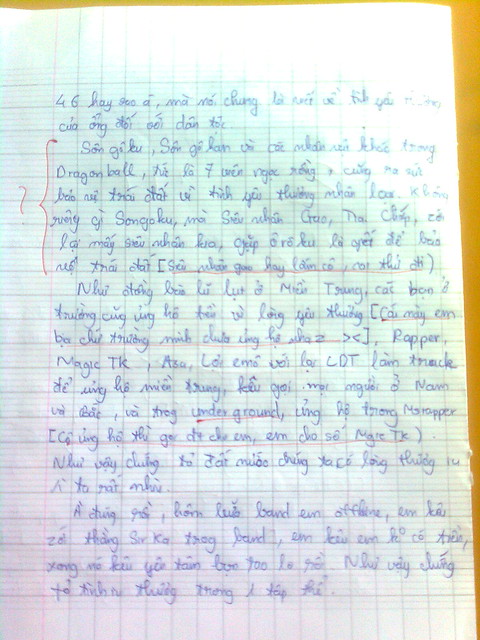 46 hay sao á, mà nói chung là viết về tình yêu
của ổng đối với dân tộc.
Sôn gô ku, Sôn gô han và các nhân vật khác trong
Dragonball, tức là 7 viên ngọc rồng, cũng ra sức
bảo vệ trái đất vì tình yêu thương nhân loại. Không
riêng gì Songoku, mà Siêu nhân Gao, Tia Chớp, còn
lại mấy siêu nhân kia, gặp ôrôku là giết để bảo
vệ trái đất [Siêu nhân gao hay lắm cô, coi thử đi)
?
Như đồng bào lũ lụt ở Miền Trung, các bạn ở
trường cũng ủng hộ tiền vì lòng yêu thương [Cái này em
bịa chứ trường mình chưa ủng hộ nhaz ><], Rapper,
Magic TK, Asa, Lời emô với lại CDT làm track
để ủng hộ miền trung, kêu gọi mọi người ở Nam
và Bắc, và trog underground, ủng hộ trong Msrapper
[Cô ủng hộ thì gọi đt cho em, em cho số Magic TK)
Như vậy chứng tỏ đất nước chúng ta có lòng thương
ta rất nhìu.
À đúng rồi, hôm bữa band em offline, em kêu
với thằng Sir Ka trog band, em kêu em hổ có tiền,
xong nó kêu yên tâm bạn tao lo rồi. Như vậy chứng
tỏ tình thương trong 1 tập thể.